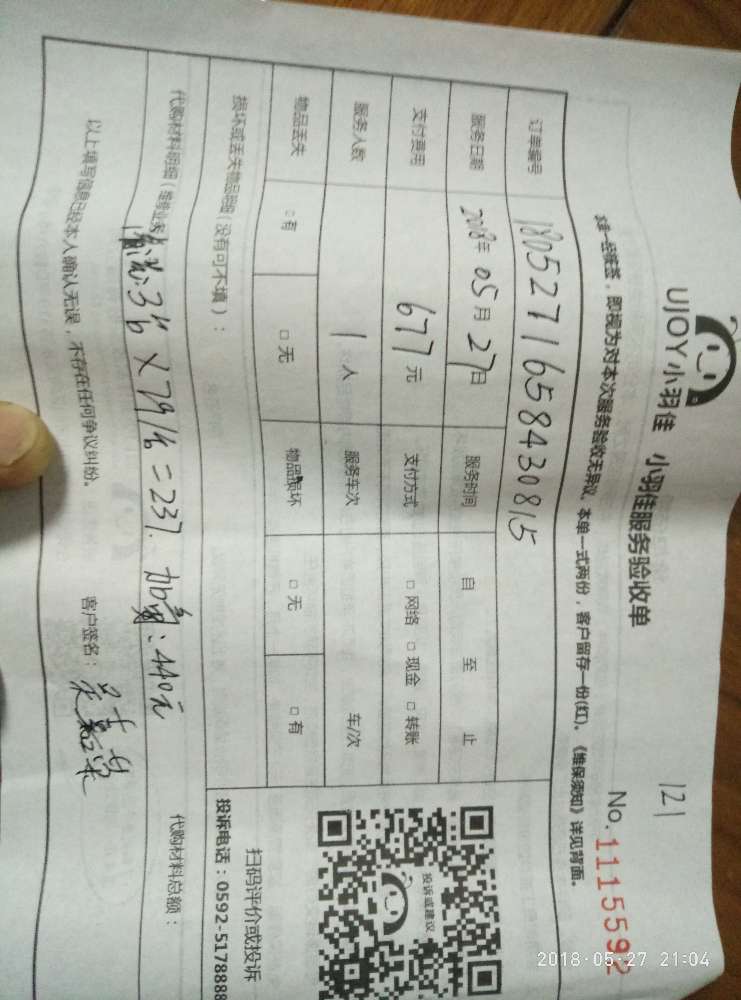 121
UJOY小羽佳 小羽佳服务验收单
No.1115592
本单一式两份，客户留存一份(红)。《维保须知》详见背面。
订单编号 1805271658430815
服务日期 2018年 05月 27日 服务时间 自 至 止
支付费用 677元 支付方式 □网络 □现金 □转账
服务人数 1 人 服务车次 车/次
物品丢失 □有 □无 物品损坏 □无 □有
损坏或丢失物品明细（没有可不填）：
代购材料明细（维修业务
3台×79/台=237. 加 : 440元
代购材料总额：
以上填写信息已经本人确认无误，不存在任何争议纠纷。 客户签名：
投诉或建议
扫码评价或投诉
投诉电话：0592-5178888
2018-05-27 21:04